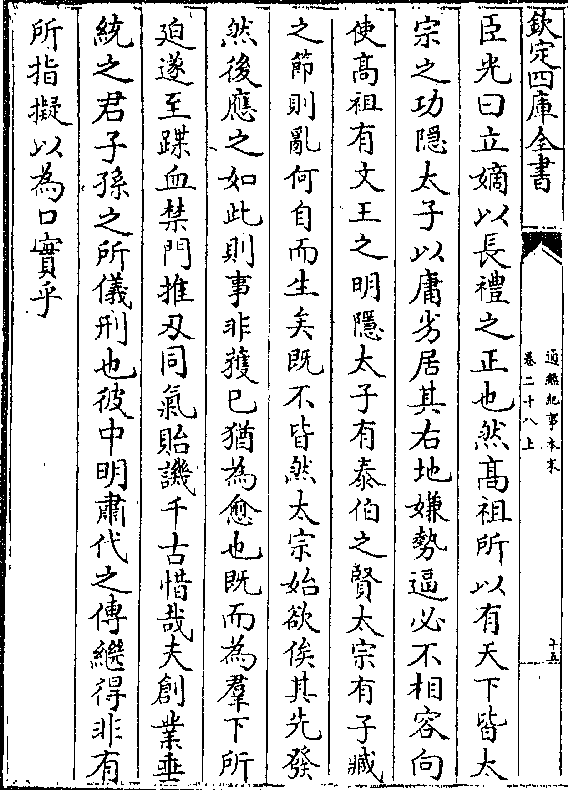 欽定四庫全書
通鑑紀事本末
卷二十八上
十五
臣光曰立嫡以長禮之正也然髙祖所以有天下皆太
宗之功隠太子以庸劣居其右地嫌勢逼必不相容向
使髙祖有文王之明隠太子有泰伯之賢太宗有子臧
之節則亂何自而生矣既不皆然太宗始欲俟其先發
然後應之如此則事非獲已猶為愈也既而為羣下所
廹遂至蹀血禁門推刄同氣貽譏千古惜哉夫創業垂
統之君子孫之所儀刑也彼中明肅代之傳繼得非有
所指擬以為口實乎